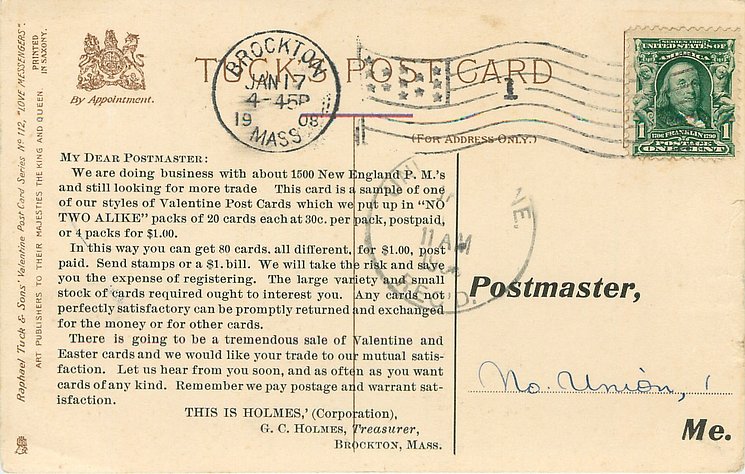 Raphael Tuck & Sons' Valentine Post Card Series Nº 112, "LOVE MESSENGERS".
PRINTED IN SAXONY.
ART PUBLISHERS TO THEIR MAJESTIES THE KING AND QUEEN
By Appointment.
TUCK'S POST CARD
BROCKTON
JAN 17
4-45P
1908
MASS.
1
(FOR ADDRESS ONLY.)
UNITED STATES OF AMERICA
1 FRANKLIN 1
POSTAGE
ONE CENT
MY DEAR POSTMASTER:
We are doing business with about 1500 New England P. M.'s
and still looking for more trade This card is a sample of one
of our styles of Valentine Post Cards which we put up in "NO
TWO ALIKE" packs of 20 cards each at 30c. per pack, postpaid,
or 4 packs for $1.00.
In this way you can get 80 cards, all different, for $1.00, post
paid. Send stamps or a $1. bill. We will take the risk and save
you the expense of registering. The large variety and small
stock of cards required ought to interest you. Any cards not
perfectly satisfactory can be promptly returned and exchanged
for the money or for other cards.
There is going to be a tremendous sale of Valentine and
Easter cards and we would like your trade to our mutual satis-
faction. Let us hear from you soon, and as often as you want
cards of any kind. Remember we pay postage and warrant sat-
isfaction.
THIS IS HOLMES,' (Corporation),
G. C. HOLMES, Treasurer,
BROCKTON, MASS.
11 AM
REC'D.
Postmaster,
No. Union,
Me.